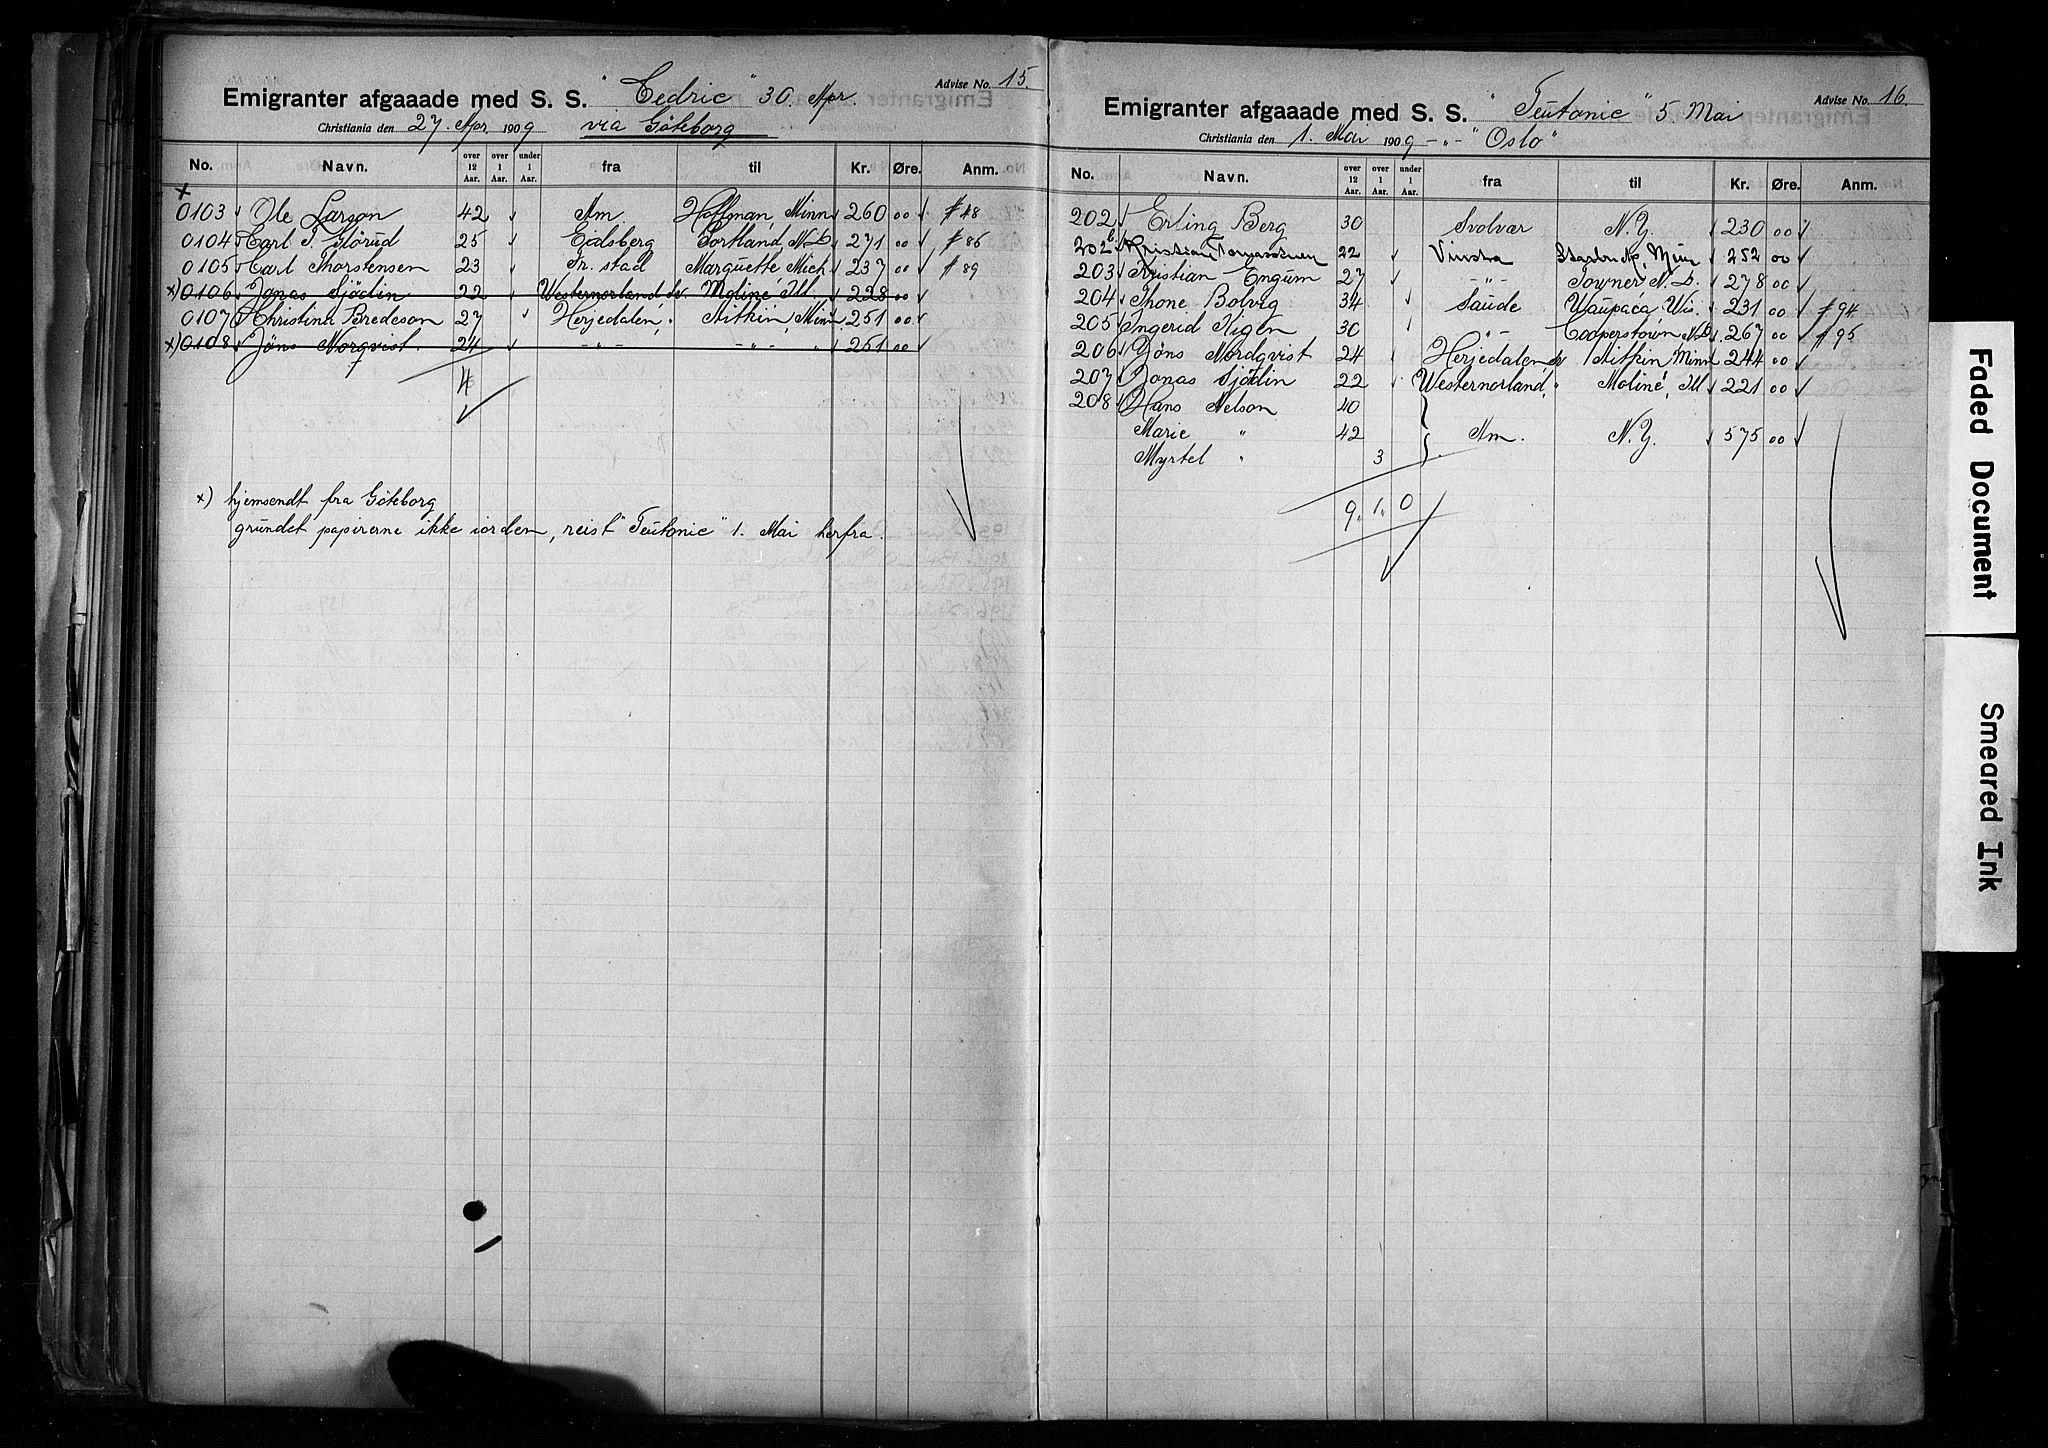 Advise No. 15.
Emigranter afgaaade med S. S. "Cedric" 30 Apr.
Christiania den 27 Apr. 1909 via Göteborg
No. Navn. over 12 Aar. over 1 Aar. under 1 Aar. fra til Kr. Øre. Anm.
x
0103 Ole Larson 42 Am. Hoffman, Minn 260 00 # 48
0104 Carl T. Glörud 25 Eidsberg Portland, N.D. 271 00 # 86
0105 Carl Thorstensen 23 Fr. stad Marquette Mich 237 00 # 89
x) 0106 Jonas Sjödin 22 Westernorland Sv Moline Ill. 228 00
0107 Christina Bredeson 27 Herjedalen " Aitkin, Minn 251 00
x) 0108 Jöns Norqvist 24 -"- -"- " 251 00
4
x) hjemsendt fra Göteborg
grundet papirerne ikke iorden, reist "Teutonic" 1. Mai herfra.
Advise No. 16.
Emigranter afgaaade med S. S. "Teutonic" 5 Mai
Christiania den 1. Mai 1909 -"- "Oslo"
No. Navn. over 12 Aar. over 1 Aar. under 1 Aar. fra til Kr. Øre. Anm.
202 Erling Berg 30 Svolvær N.Y. 230 00
202b Kristian 22 Vinstra Minn 252 00
203 Kristian Engum 27 -"- Towner N.D. 278 00
204 Thone Bolvig 34 Saude Waupaca Wis. 231 00 # 94
205 Ingerid Tigen 30 -"- Cooperstown N.D. 267 00 # 95
206 Jöns Nordqvist 24 Herjedalen Sv Aitkin Minn 244 00
207 Jonas Sjödin 22 Westernorland, " Moline, Ill 221 00
208 Hans Nelson 40
Marie " 42 Am. N.Y. 575 00
Myrtel " 3
9, 1, 0
Faded Document
Smeared Ink